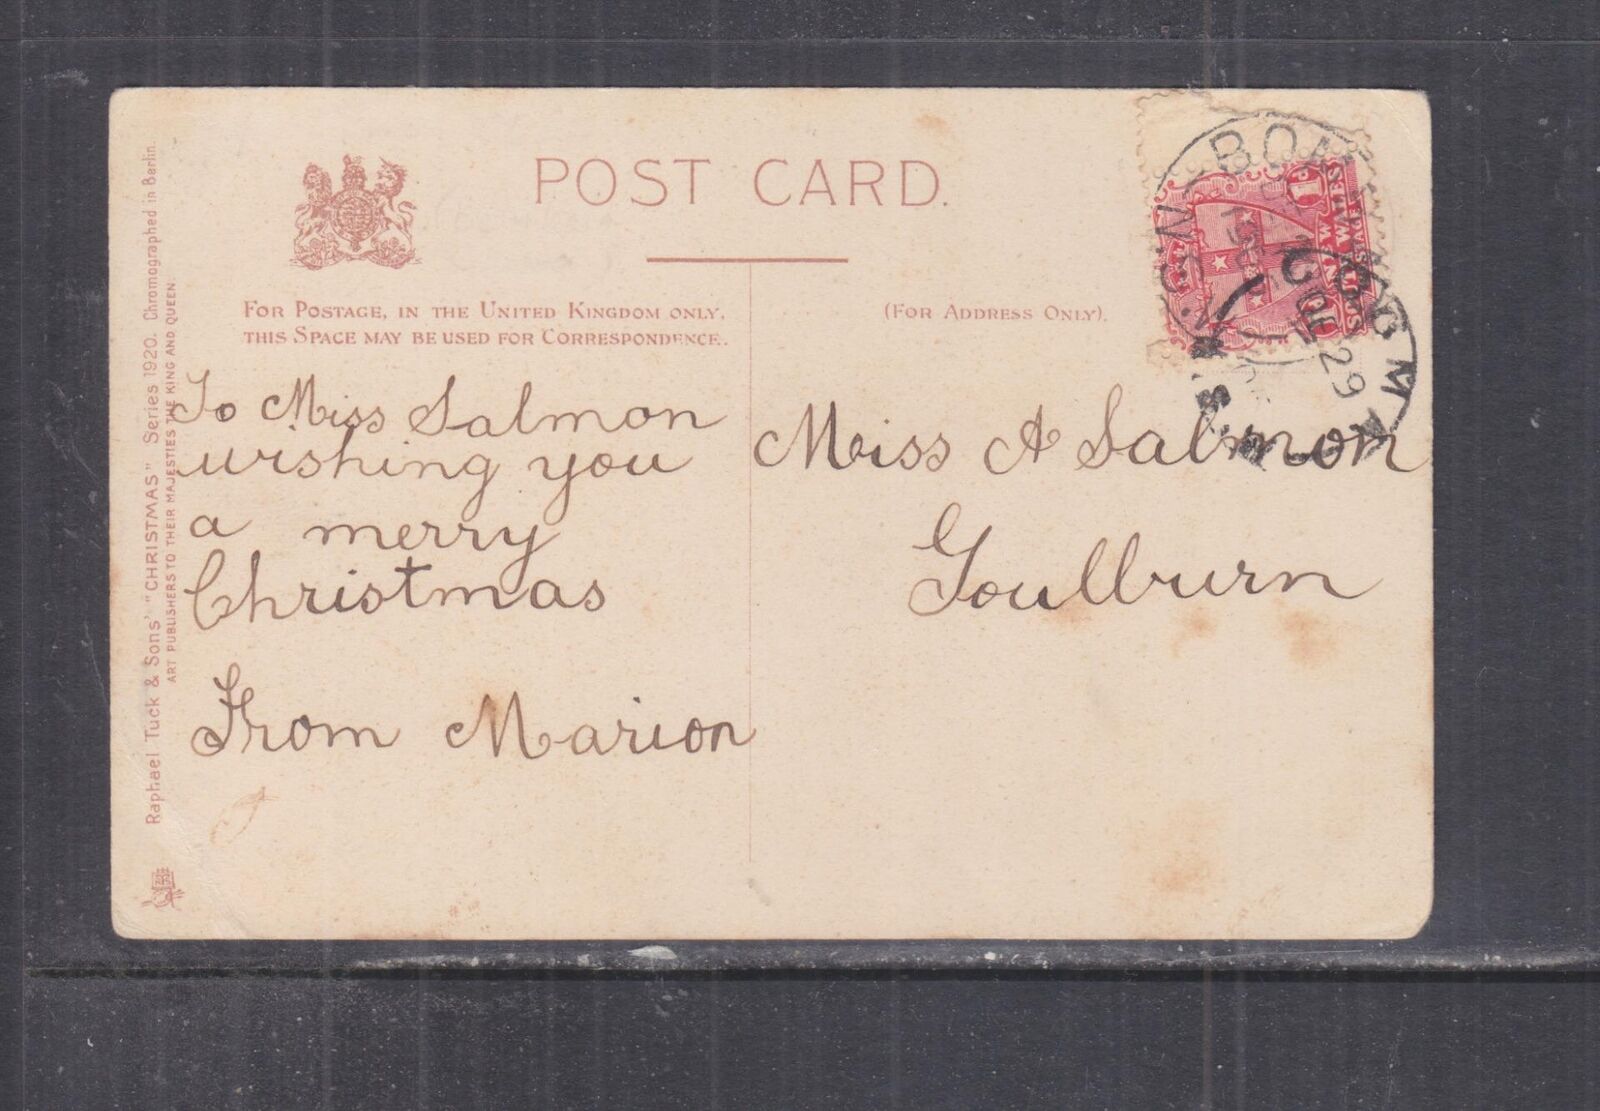 POST CARD.
FOR POSTAGE, IN THE UNITED KINGDOM ONLY,
THIS SPACE MAY BE USED FOR CORRESPONDENCE.
(FOR ADDRESS ONLY).
To Miss Salmon
wishing you
a merry
Christmas
From Marion
Miss A Salmon
Goulburn
Raphael Tuck & Sons' "CHRISTMAS" Series 1920. Chromographed in Berlin.
ART PUBLISHERS TO THEIR MAJESTIES THE KING AND QUEEN.
N.S.W
29